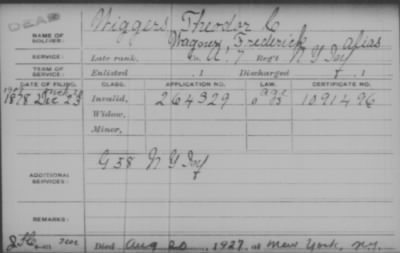 DEAD
NAME OF SOLDIER:
Wiggers, Theodor C
Wagner, Frederick alias
SERVICE:
Late rank, Co. A, 7 Reg't N Y Inf
TERM OF SERVICE:
Enlisted , 1 Discharged , 1
DATE OF FILING. CLASS. APPLICATION NO. LAW. CERTIFICATE NO.
1878 Dec 23 Invalid, 264329 1091496
Widow,
Minor,
ADDITIONAL SERVICES:
G 58 N Y Inf
REMARKS:
Died Aug 20, 1927, at New York, N.Y.